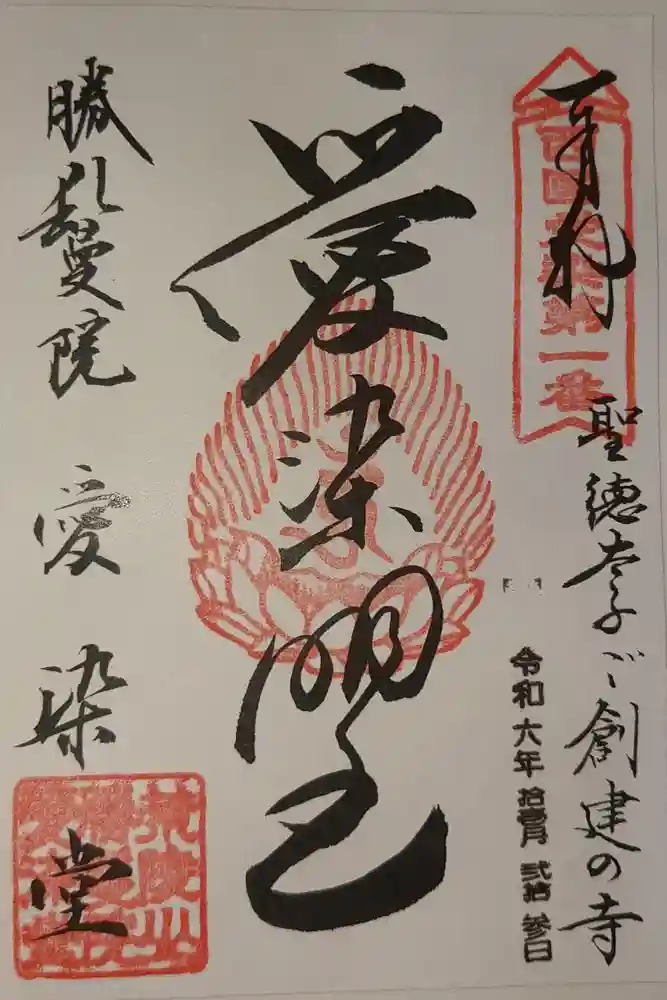 奉拝
西国愛染第一番
聖徳太子ご創建の寺
令和六年 拾壱月 弐拾 参日
愛染明王
勝鬘院 愛染堂